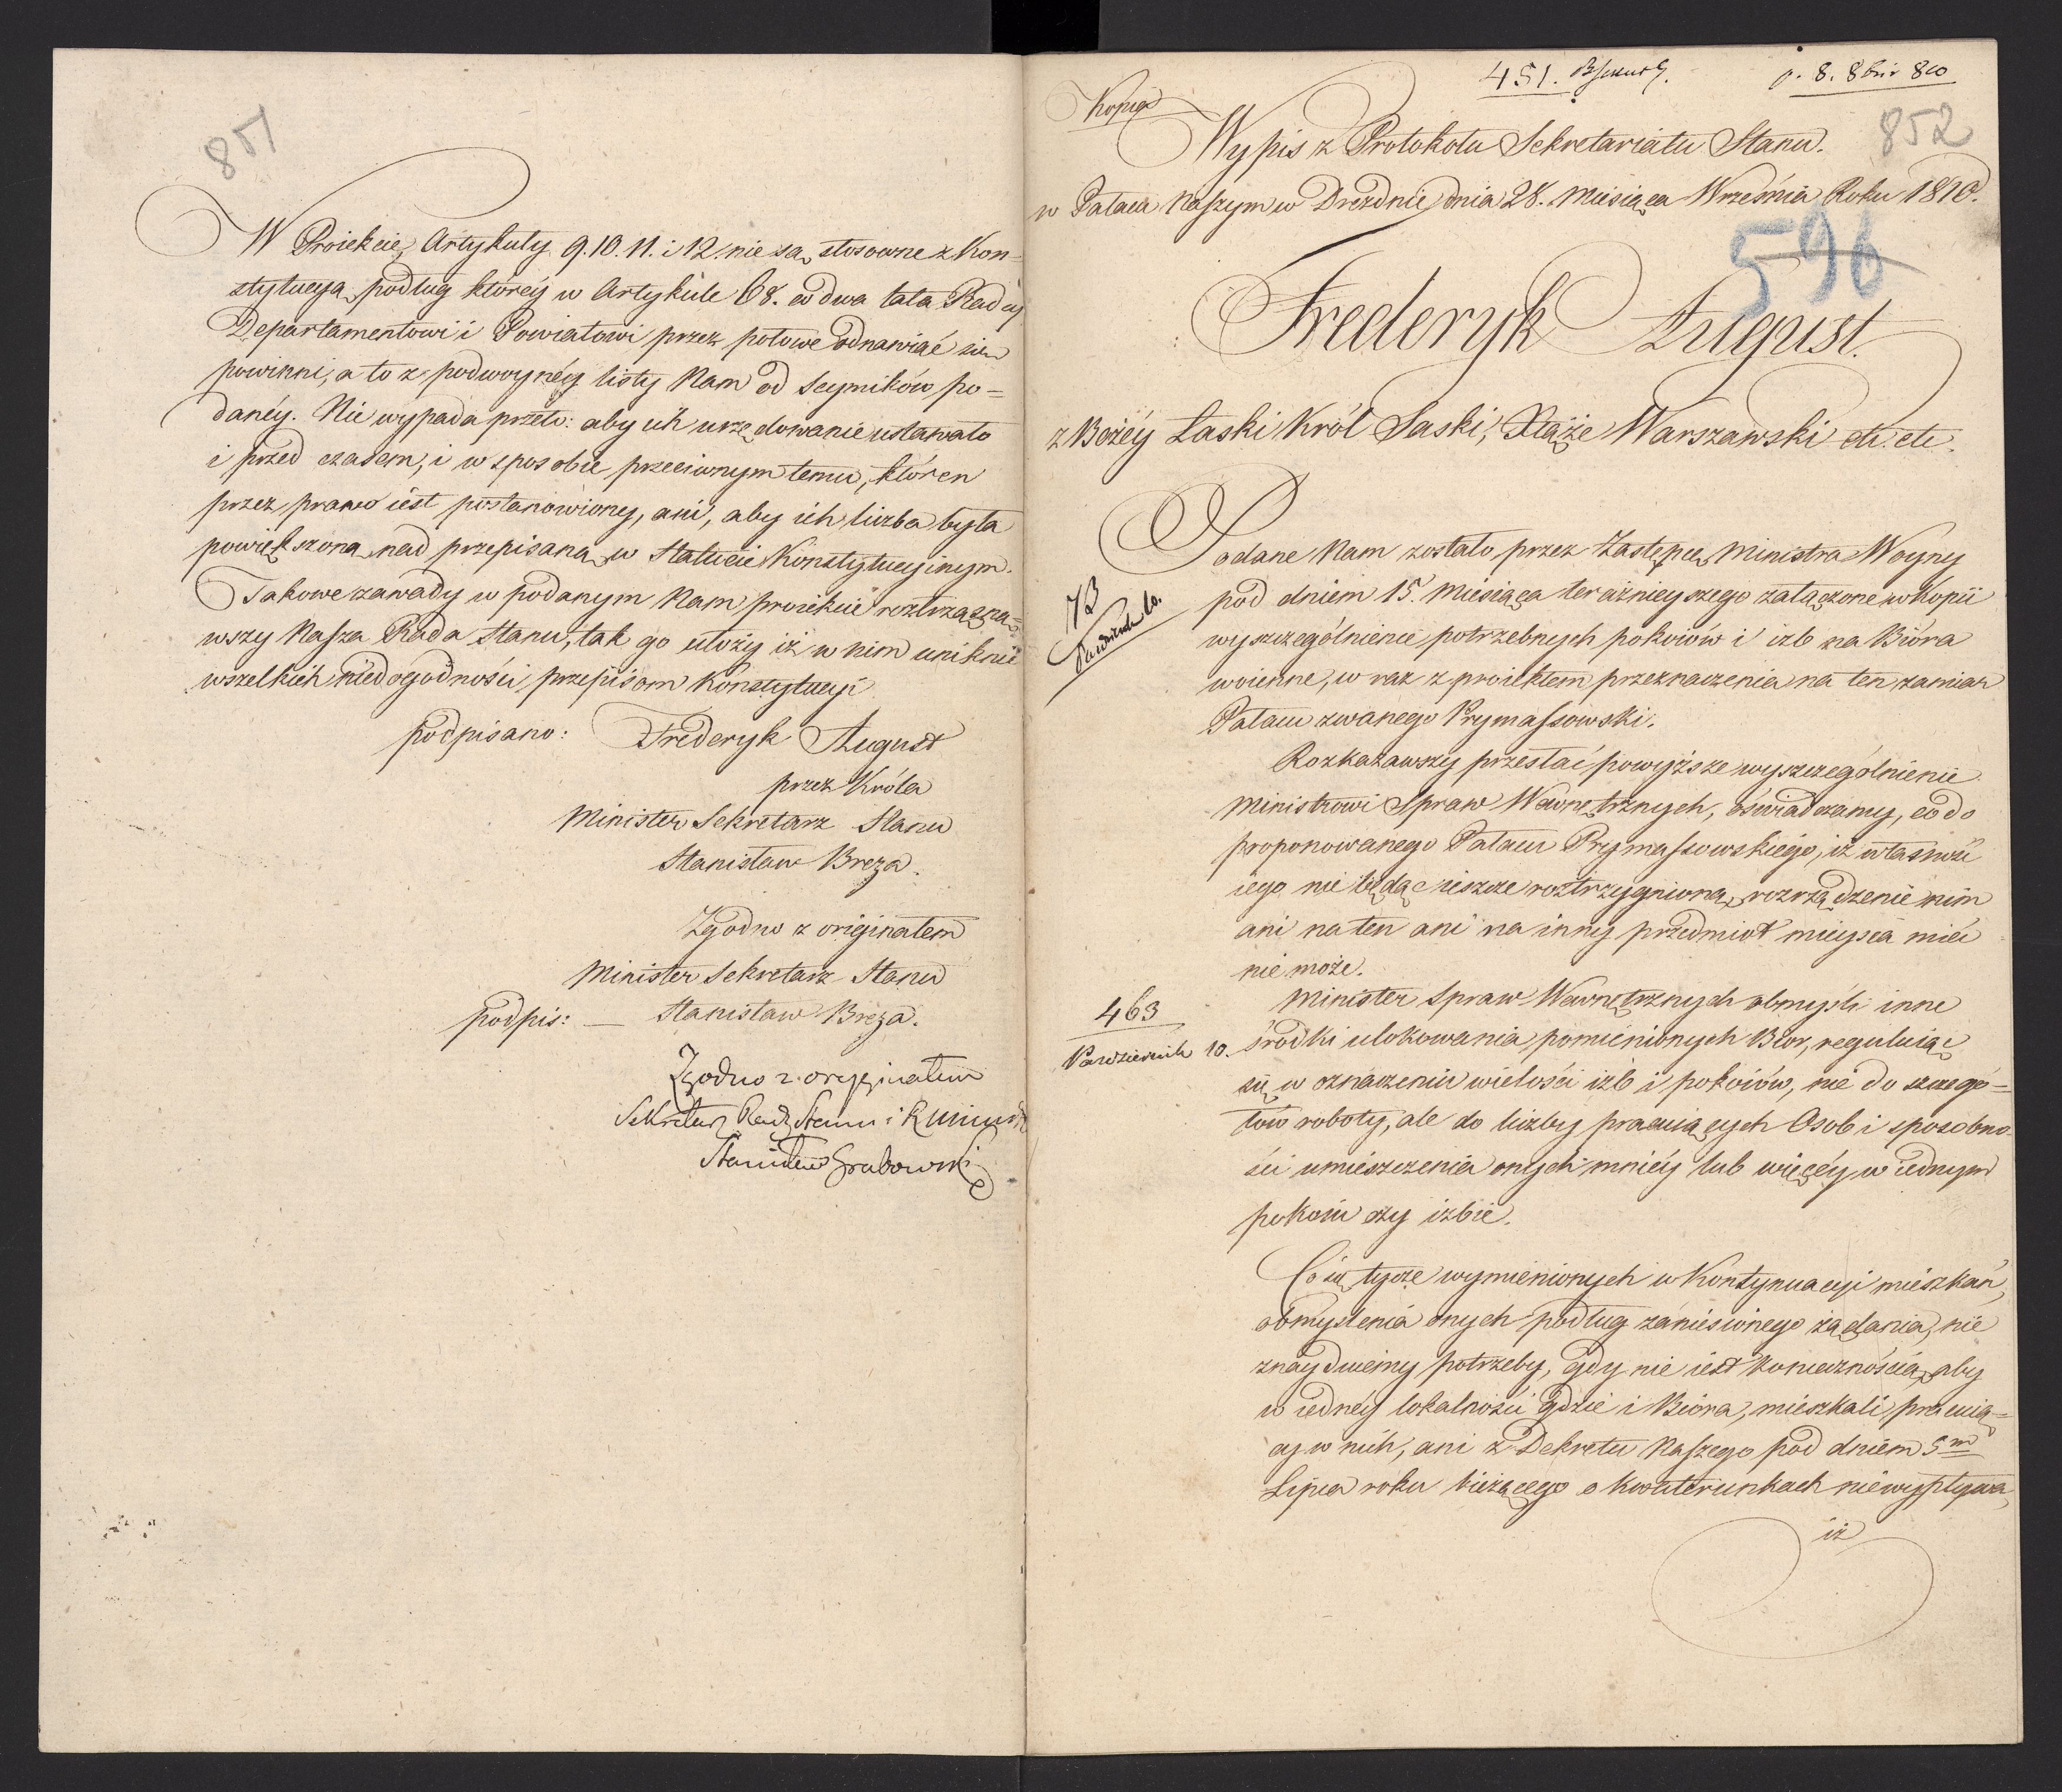 851
W Proiekcie, Artykuły 9. 10. 11. i 12. nie są stosowne z Kon-
stytucyą podług któréy w Artykule 68. co dwa lata Radcy
Departamentowi i Powiatowi przez połowę odnawiać się
powinni, a to z podwoynéy listy Nam od Seymików po=
danéy. Nie wypada przeto: aby ich urzędowanie ustawało
i przed czasem, i w sposobie przeciwnym temu, któren
przez prawo iest postanowiony, ani, aby ich liczba była
powiększona nad przepisaną w Statucie Konstytucyinym.
Takowe zawady w podanym Nam proiekcie roztrząsną=
wszy Nasza Rada Stanu, tak go ułoży iż w nim uniknie
wszelkich niedogodności przepisom Konstytucyi
podpisano: Frederyk August
przez Króla
Minister Sekretarz Stanu
Stanisław Breza.
Zgodno z originałem
Minister Sekretarz Stanu
podpis: — Stanisław Breza.
Zgodno z oryginałem
Sekretarz Rady Stanu i R Minist
Stanisław Grabowski
451. p. 8. 8bris 810
Kopia
852
Wypis z Protokołu Sekretariatu Stanu.
w Pałacu Naszym w Dreznie dnia 28. Miesiąca Września Roku 1810.
596
Frederyk August.
z Bożéy Łaski Król Saski, Xiąże Warszawski etc. etc.
Podane Nam zostało przez Zastępcę Ministra Woyny
73
Pazdziernik 10.
pod dniem 15. miesiąca teraźnieyszego załączone w kopii
wyszczególnienie potrzebnych pokoiów i izb na Bióra
woienne, w raz z proiektem przeznaczenia na ten zamiar
Pałacu zwanego Prymassowski.
Rozkazawszy przesłać powyższe wyszczególnienie
Ministrowi Spraw Wewnętrznych, oświadczamy, co do
proponowanego Pałacu Prymassowskiego, iż własność
iego nie będąc ieszcze roztrzygnioną, rozrządzenie nim
ani na ten ani na inny przedmiot mieysca mieć
nie może.
463
Pazdziernik 10.
Minister Spraw Wewnętrznych obmyśli inne
środki ulokowania pomienionych Biór, reguluiąc
się w oznaczeniu wielości izb i pokoiów, nie do szczegó=
łów roboty, ale do liczby pracuiących Osób i sposobno-
ści umieszczenia onych mniéy lub więcéy w iednym
pokoiu czy izbie.
Co się tycze wymienionych w Kontynuacyi mieszkań,
obmyślenia onych podług zaniesionego żądania, nie
znayduiemy potrzeby, gdy nie iest koniecznością, aby
w iednéy lokalności gdzie i Bióra, mieszkali pracuią=
cy w nich, ani z Dekretu Naszego pod dniem 5m
Lipca roku bieżącego o kwaterunkach niewypływa,
iż